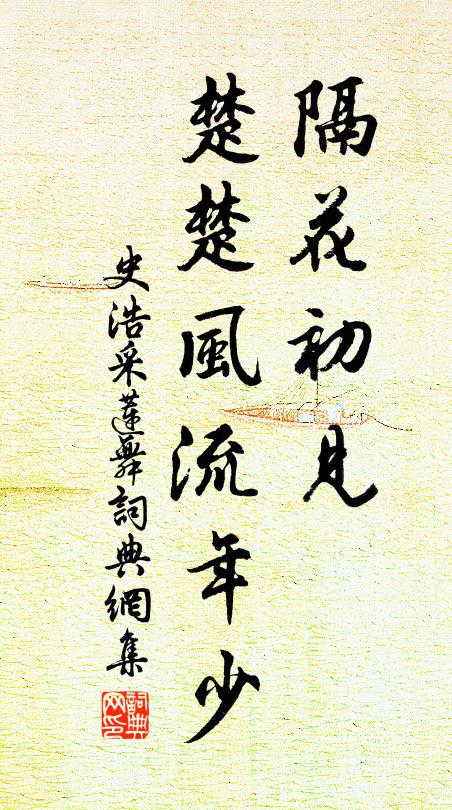 隔花初見
楚楚風流年少
史浩采蓮舞詞典網集
詞典网印